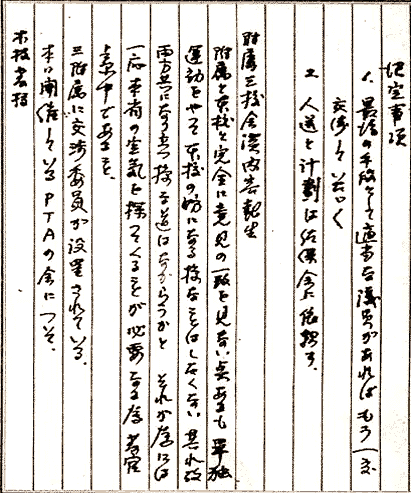 決定事項
1. 最后の手段として適当な議員があればもう一度
交渉していたゞく
2. 人選と計劃は佐保会に依頼す.
附属三校会談内容報告
附属と本校と完全に意見の一致を見ない点あるも 単独
運動をやって本校の妨になる様なことはしたくない 其れ故
両方共になり立つ様な道はなからうかと それが為には
一応本省の空気を探ってくることが必要なる為
この中であること.
三附属に交渉委員が設置されている.
本日開催しているPTAの会について.
本校